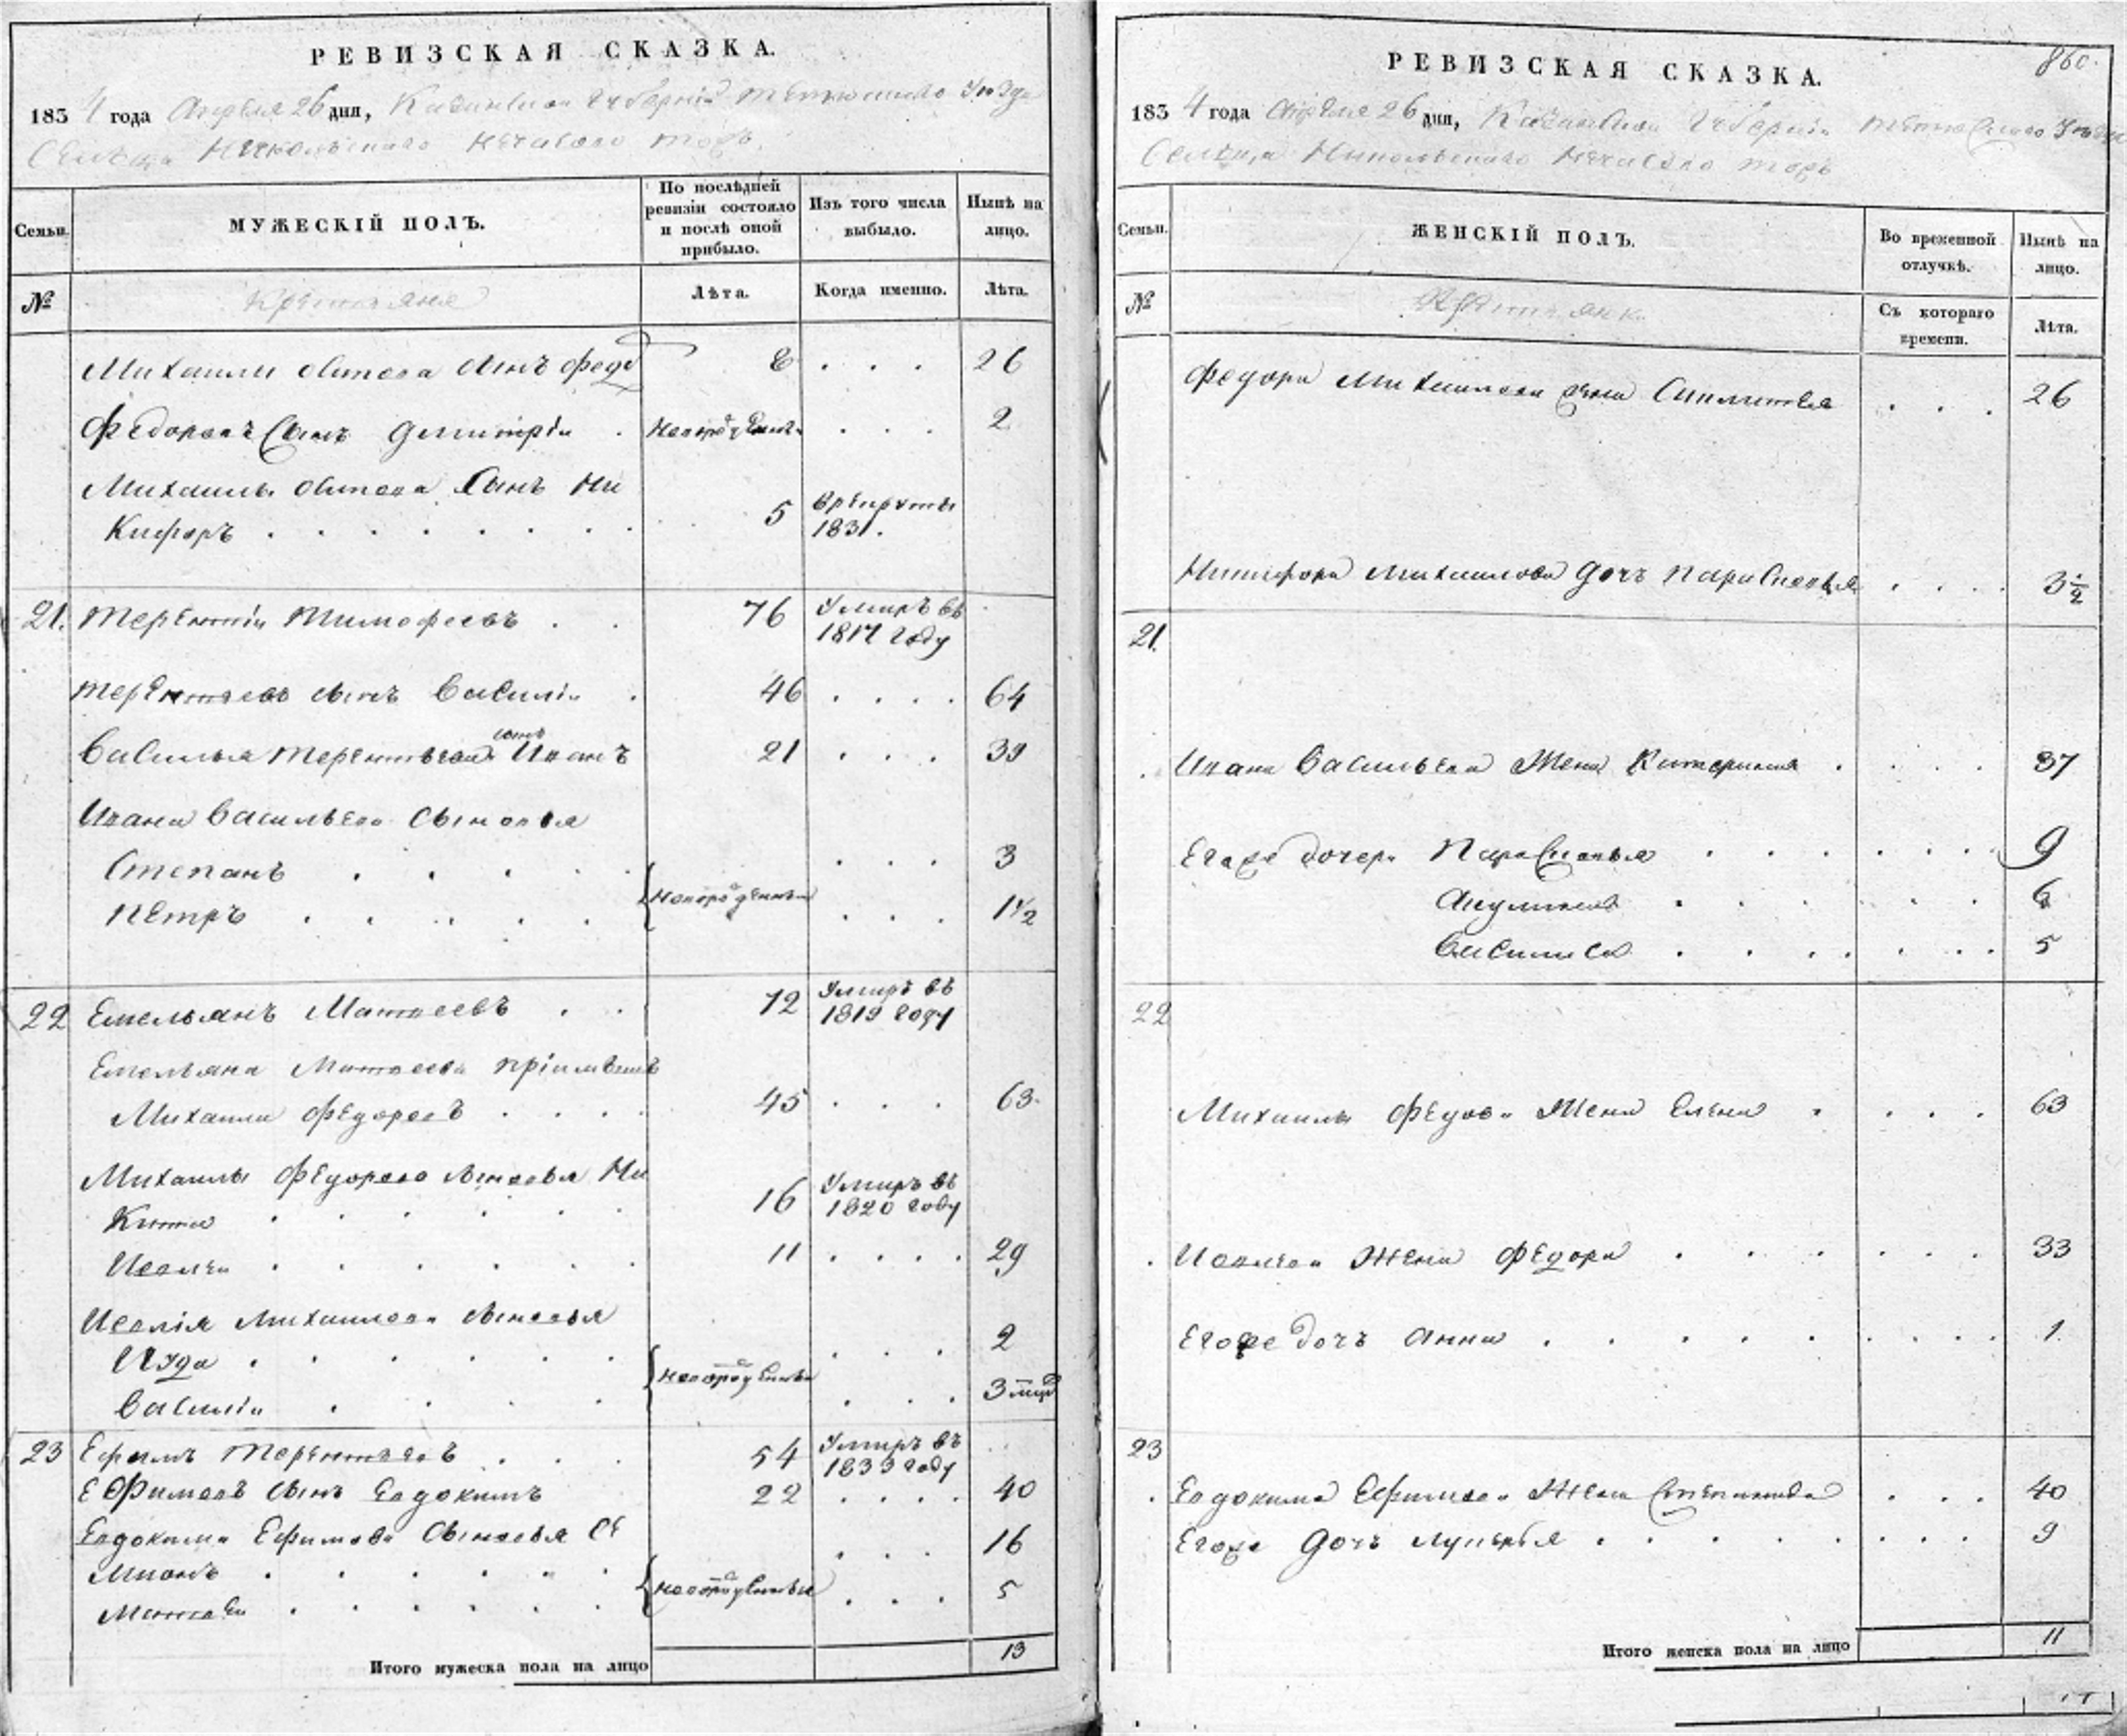 РЕВИЗСКАЯ СКАЗКА.
1834 года Апреля 26 дня, Казанской Губернии Тетюшского Уезда
Сельца Никольскаго Нечасово тожъ.
Семьи.
МУЖЕСКІЙ ПОЛЪ.
По послѣдней ревизіи состояло и послѣ оной прибыло.
Изъ того числа выбыло.
Нынѣ на лицо.
№
Крестьяне
Лѣта.
Когда именно.
Лѣта.
Михаилы сынъ Федо 8 . . . 26
Федоровъ сынъ Дмитрiй . новорожденъ . . . 2
Михаилы сынъ Ни
кифоръ . . . . . . . 5 въ рекруты 1831.
21. Терентiй Тимофеевъ . . 76 Умиръ въ 1817 году
Терентьевъ сынъ Василiй . 46 . . . . 64
Василья Терентьева сынъ Иванъ 21 . . . 39
Ивана Васильева сыновья
Степанъ . . . . . . . 3
Петръ . . . . . новорожденные . . . 1 1/2
22 Емельянъ Матвеевъ . . 72 Умиръ въ 1819 году
Емельяна Матвеева прiимышъ
Михаила Федоровъ . . . . 45 . . . 63.
Михаилы Федорова сыновья Ни
кита . . . . . . 16 Умиръ въ 1820 году
Иевлей . . . . . . 11 . . . . 29
Иевлiя Михаилова сыновья
Иуда . . . . . . . . . 2
Василiй . . . новорожденные . . . 3 мѣс
23 Ефимъ Терентьевъ . . . 54 Умиръ въ 1833 году
Ефимовъ сынъ Евдокимъ 22 . . . . 40
Евдокима Ефимова сыновья Се
мионъ . . . . . . . . . 16
Матвей . . . . . . новорожденные . . . 5
Итого мужеска пола на лицо 13
860.
РЕВИЗСКАЯ СКАЗКА.
1834 года Апреля 26 дня, Казанской Губернiи Тетюшского Уезда
Сельца Никольскаго Нечасово тожъ
Семьи.
ЖЕНСКІЙ ПОЛЪ.
Во временной отлучкѣ.
Нынѣ на лицо.
№
Крестьянк.
Съ котораго времени.
Лѣта.
Федора Михаилова жена . . . 26
Никифора Михаилова дочь Парасковья . . . . 3 1/2
21.
. Ивана Васильева Жена Катерина . . . . 37
Егоже дочери Парасковья . . . . . . . 9
Акулина . . . . . 6
Василиса . . . . . . . 5
22
Михаилы Федова Жена Елена . . . . 63
. Иевлева Жена Федора . . . . . . . 33
Егоже дочь Анна . . . . . . . . . . 1.
23
. Евдокима Ефимова Жена Степанида . . . 40
Егоже дочь Лукерья . . . . . . . . 9
Итого женска пола на лицо 11